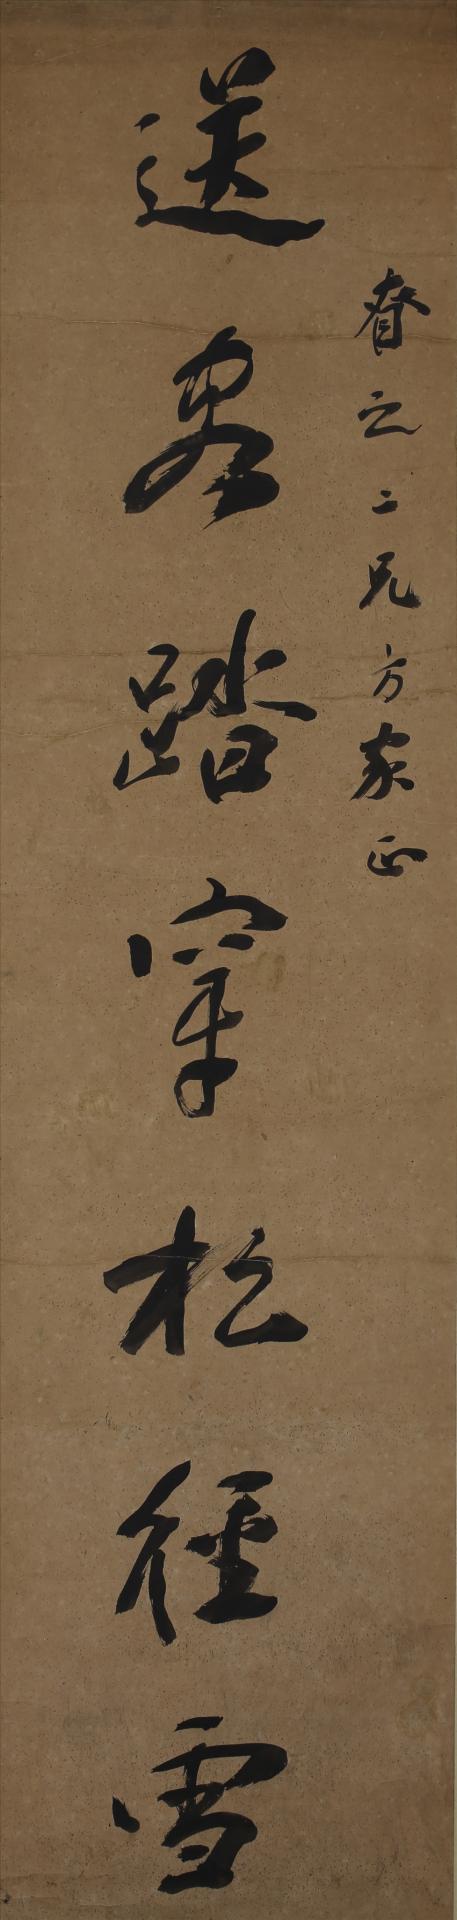 之二兄方家正
送客踏穿松徑雪